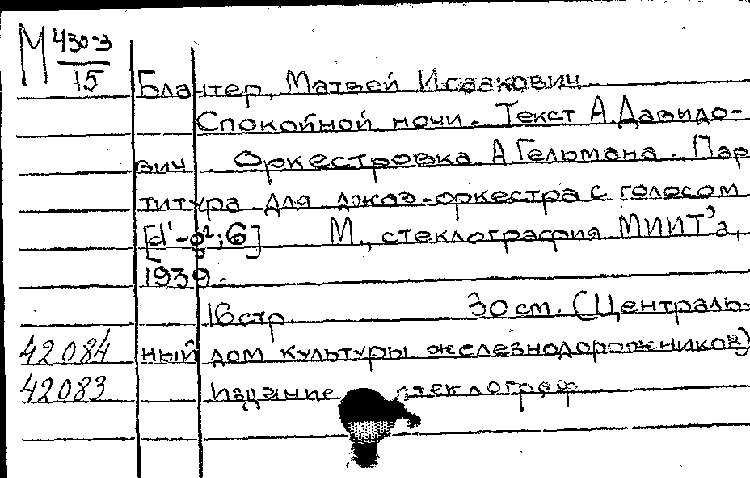 М 430-3
15
Блантер, Матвей Исаакович
Спокойной ночи. Текст А. Давидо-
вич. Оркестровка А. Гельмана. Пар
титура для джаз-оркестра с голосом
[d'-g²; G] М., стеклография МИИТ'а,
1939.
16 стр. 30 см. (Централь-
42084 ный дом культуры железнодорожников)
42083 Издание стеклограф